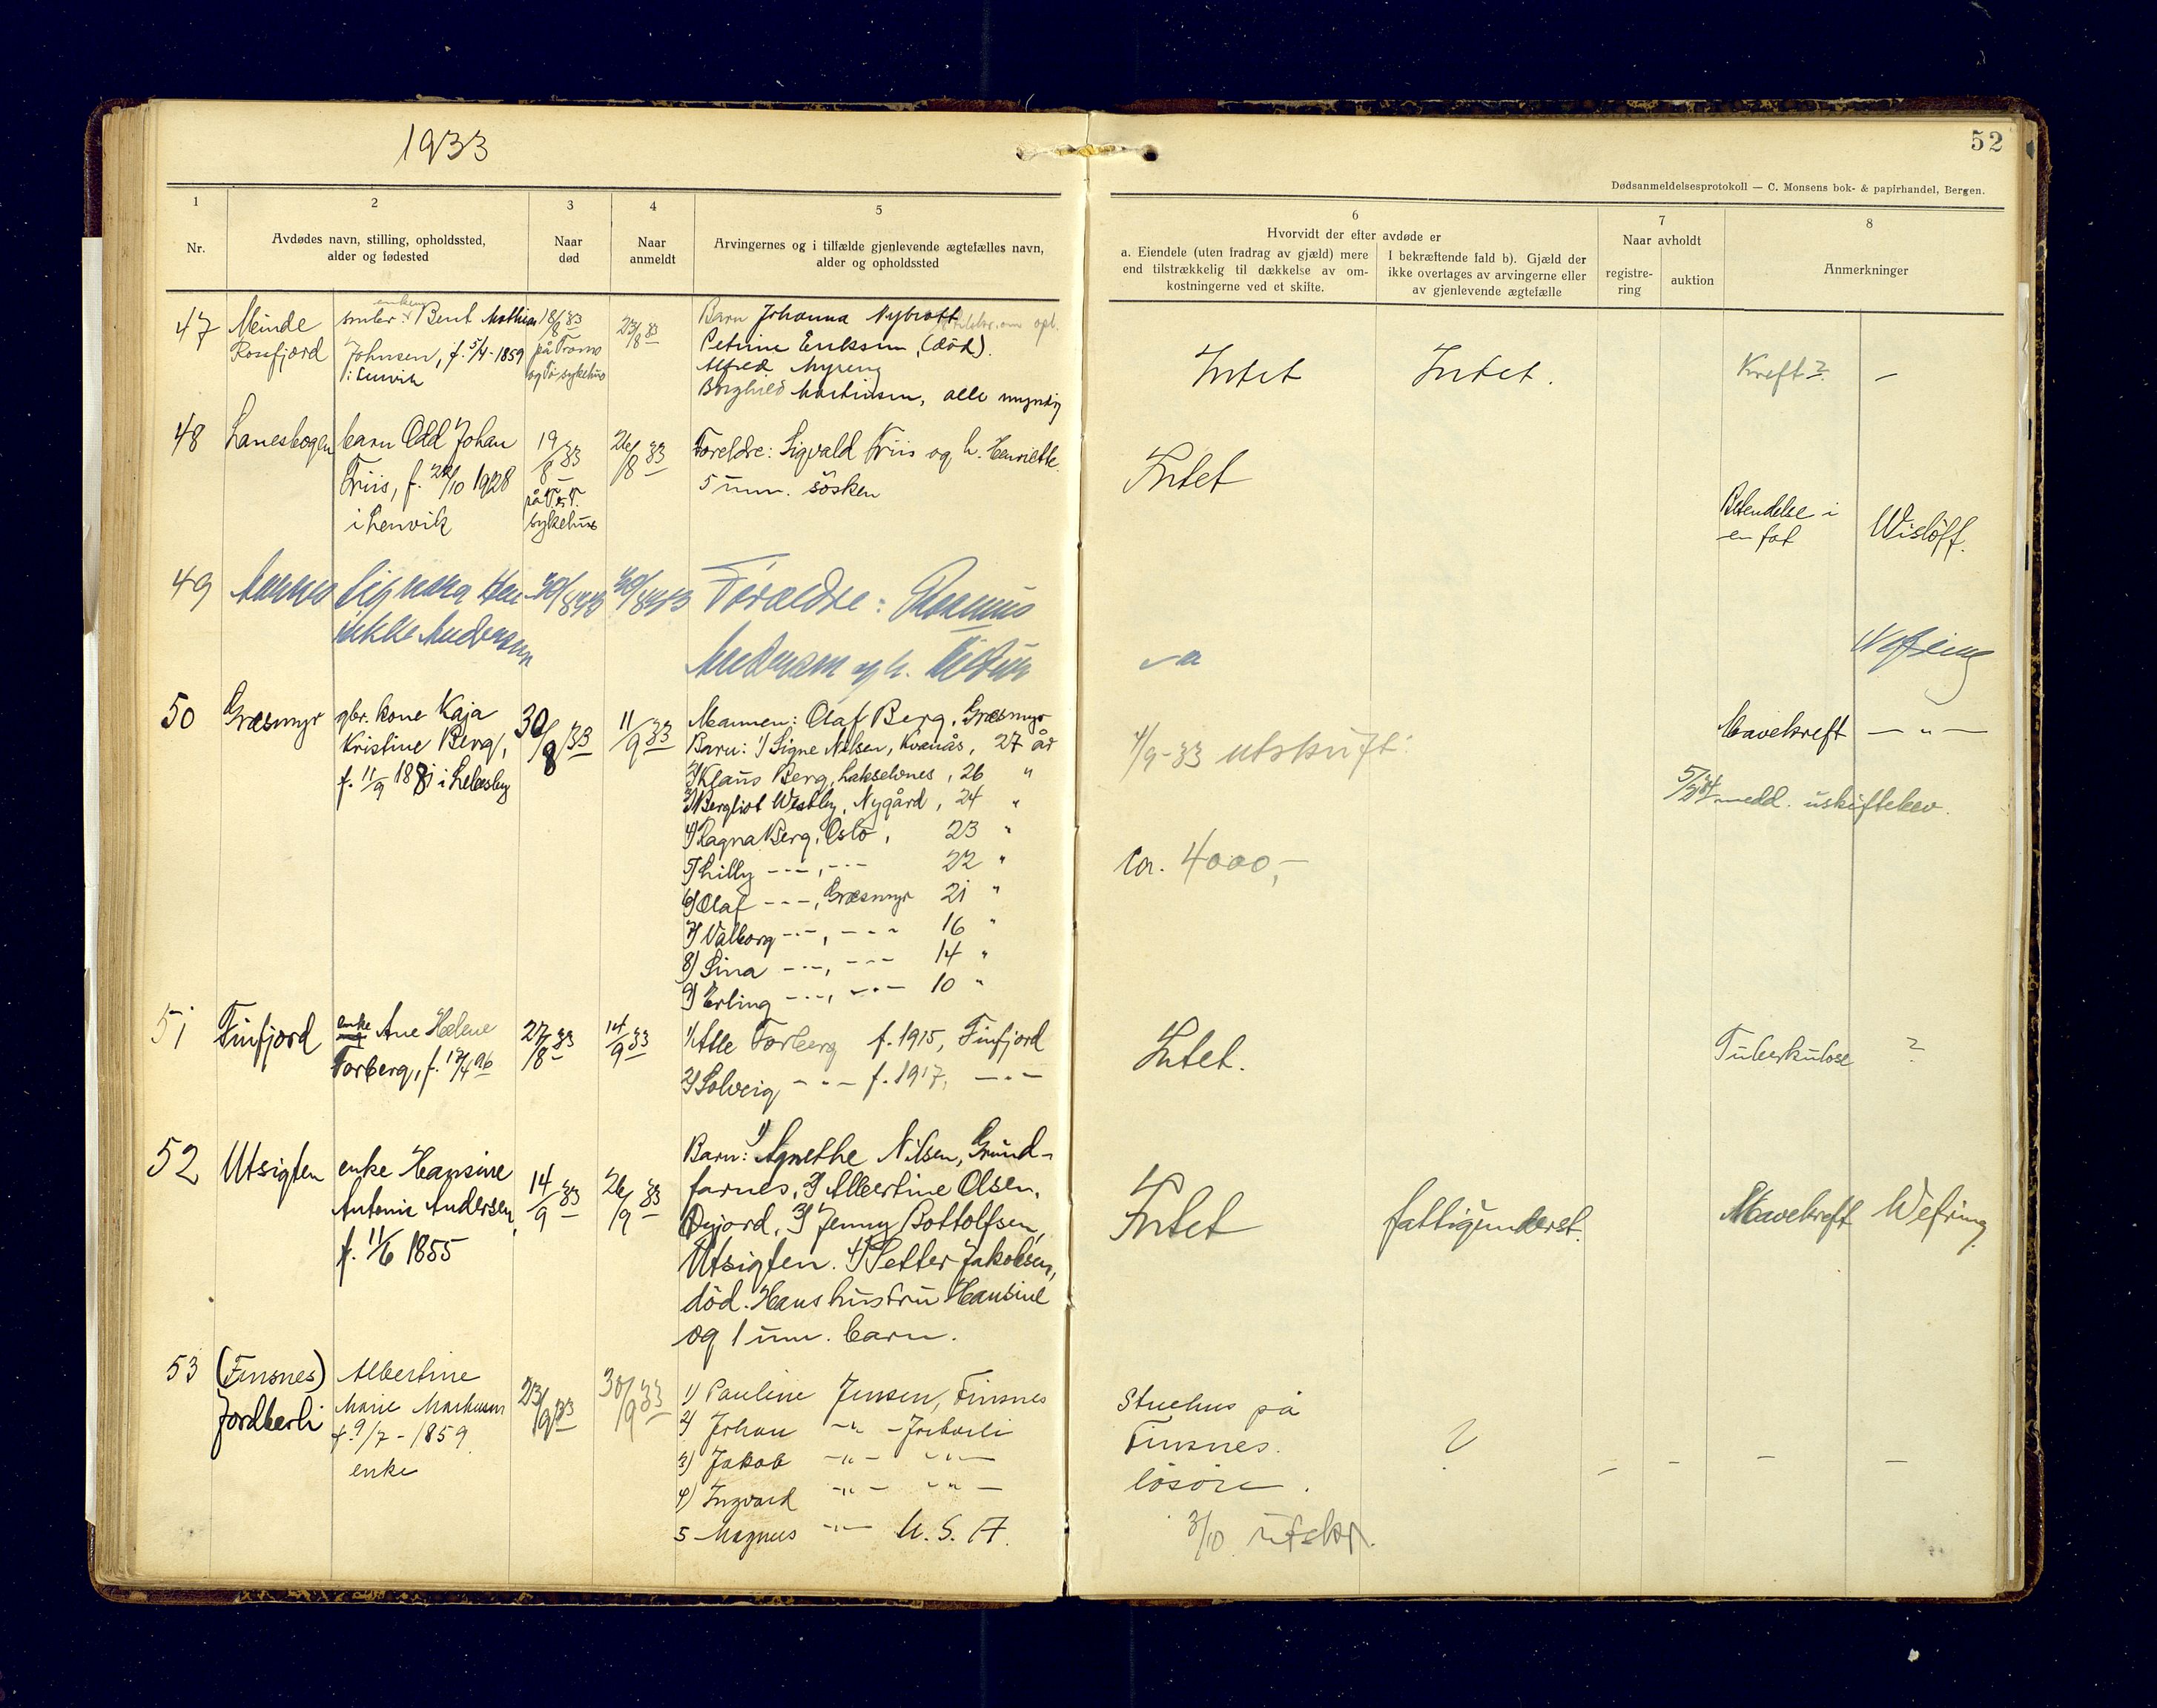 1933
52
Dødsanmeldelsesprotokoll — C. Monsens bok- & papirhandel, Bergen.
1
2
3
4
5
6
7
8
Nr.
Avdødes navn, stilling, opholdssted,
alder og fødested
Naar
død
Naar
anmeldt
Arvingernes og i tilfælde gjenlevende ægtefælles navn,
alder og opholdssted
Hvorvidt der efter avdøde er
a. Eiendele (uten fradrag av gjæld) mere
end tilstrækkelig til dækkelse av om-
kostningerne ved et skifte.
I bekræftende fald b). Gjæld der
ikke overtages av arvingerne eller
av gjenlevende ægtefælle
Naar avholdt
registre-
ring
auktion
Anmerkninger
47
Rossfjord
Bernt Mathias
Johnsen, f. 5/4-1859
i Lenvik
18/8 33
på Troms
og Tø sykehus
23/8 33
Barn Johanna Nybrott
Petrine Eriksen, (död).
Alfred Myreng
Borghild Martinsen, alle myndig
Intet
Intet.
Kreft?
—
48
Lanesbogen
barn Odd Johan
Friis, f. 22/10 1928
i Lenvik
19/8 33
på T. & T.
sykehus
26/8 33
Foreldre: Sigvald Friis og h. Henriette.
5 um. sösken
Intet
Betendelse i
en fot
Wislöff.
49
Signora Hen
rikke Andersen
30/8 33
30/8 33
Forældre: Rasmus
Andersen og h.
Wefring
50
Græsmyr
gbr. kone Kaja
Kristine Berg,
f. 11/9 1881 i Lebesby
30/8 33
11/9 33
Mannen: Olaf Berg, Græsmyr
Barn: 1) Signe Nilsen, Kvanås, 27 år
2) Klaus Berg, Lakselvnes, 26 "
3) Bergliot Westby, Nygård, 24 "
4) Ragna Berg, Oslo, 23 "
5) Lilly -"-, -"- 22 "
6) Olaf -"-, Græsmyr 21 "
7) Valborg -"-, -"- 16 "
8) Sina -"-, -"- 14 "
9) Erling -"-, -"- 10 "
4/9-33 utskrift.
ca. 4000,-
Mavekreft
— " —
medd. uskiftebev.
51
Finfjord
enke Ane Helene
Torberg, f. 17/4 96
27/8 33
14/9 33
1) Atle Torberg f. 1915, Finfjord
2) Solveig -"- f. 1917, -"-
Intet.
Tuberkulose
?
52
Utsigten
enke Hansine
Antonie Andersen,
f. 11/6 1855
14/9 33
26/9 33
Barn: 1) Agnethe Nilsen, Grund-
farnes, 2) Albertine Olsen,
Øyjord, 3) Jenny Bottolfsen,
Utsigten. 4) Petter Jakobsen,
död. Hans hustru Hansine
og 1 um. barn.
Intet
fattigunderst.
Mavekreft
Wefring
53
(Finsnes)
Jordbærli
Albertine
Marie Markussen
f. 9/7 - 1859
enke
23/9 33
30/9 33
1) Pauline Jensen, Finsnes
2) Johan -"- - Jordbærli
3) Jakob -"- -"-
4) Ingvard -"- -"-
5 Magnus -"- U. S. A.
Stuehus på
Finsnes.
lösöre.
3/10 utskr.
?
- - - -